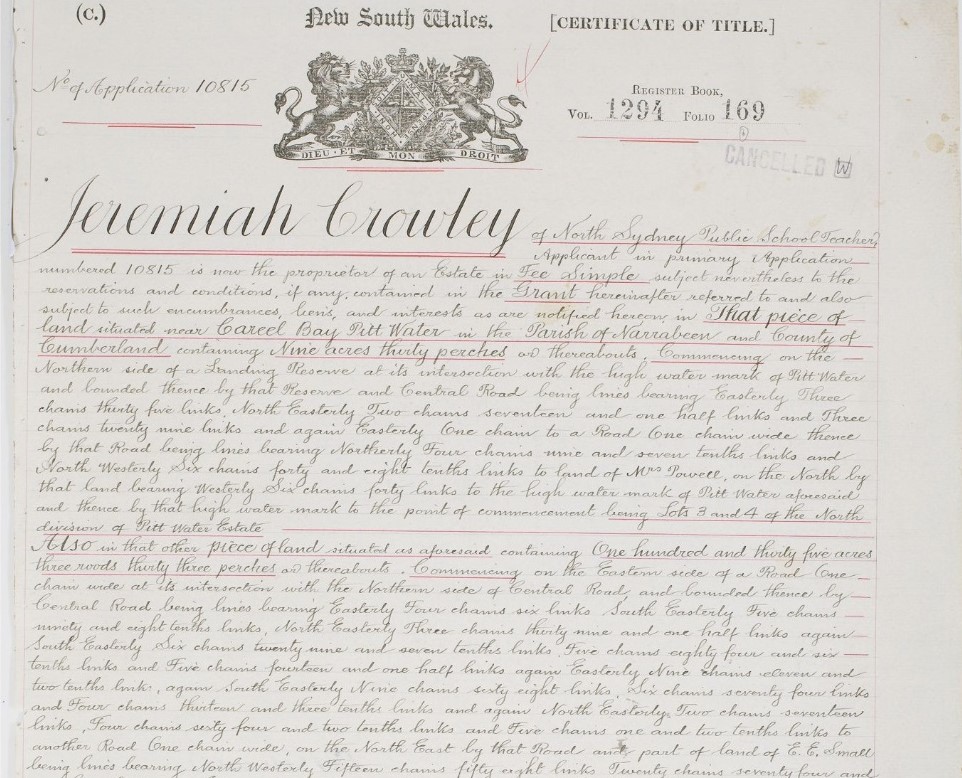 (C.)
New South Wales.
[CERTIFICATE OF TITLE.]
No of Application 10815
REGISTER BOOK,
VOL. 1294 FOLIO 169
CANCELLED W
DIEU · ET MON DROIT
Jeremiah Crowley of North Sydney Public School Teacher,
Applicant in primary Application
numbered 10815 is now the proprietor of an Estate in Fee Simple subject nevertheless to the
reservations and conditions, if any, contained in the Grant hereinafter referred to and also
subject to such encumbrances, liens, and interests as are notified hereon, in That piece of
land situated near Careel Bay Pitt Water in the Parish of Narrabeen and County of
Cumberland containing Nine acres thirty perches or thereabouts. Commencing on the
Northern side of a Landing Reserve at its intersection with the high water mark of Pitt Water
and bounded thence by that Reserve and Central Road being lines bearing Easterly Three
chains thirty five links, North Easterly Two chains seventeen and one half links and Three
chains twenty nine links and again Easterly One chain to a Road One chain wide thence
by that Road being lines bearing Northerly Four chains nine and seven tenths links and
North Westerly Six chains forty and eight tenths links to land of Mrs Powell, on the North by
that land bearing Westerly Six chains forty links to the high water mark of Pitt Water aforesaid
and thence by that high water mark to the point of commencement being Lots 3 and 4 of the North
division of Pitt Water Estate
Also in that other piece of land situated as aforesaid containing One hundred and thirty five acres
three roods thirty three perches or thereabouts. Commencing on the Eastern side of a Road One
chain wide at its intersection with the Northern side of Central Road, and bounded thence by
Central Road being lines bearing Easterly Four chains six links South Easterly Five chains
ninety and eight tenths links, North Easterly Three chains thirty nine and one half links again
South Easterly Six chains twenty nine and seven tenths links, Five chains eighty four and six
tenths links and Five chains fourteen and one half links again Easterly Nine chains eleven and
two tenths links, again South Easterly Nine chains sixty eight links, Six chains seventy four links
and Four chains thirteen and three tenths links and again North Easterly Two chains seventeen
links, Four chains sixty four and two tenths links and Five chains one and two tenths links to
another Road One chain wide, on the North East by that Road and part of land of E. E. Small
being lines bearing North Westerly Fifteen chains fifty eight links Twenty chains seventy four and